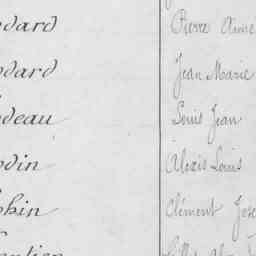 dard Pierre Aimé
dard Jean Marie
deau Louis Jean
din Alexis Louis
phin Clément Jose